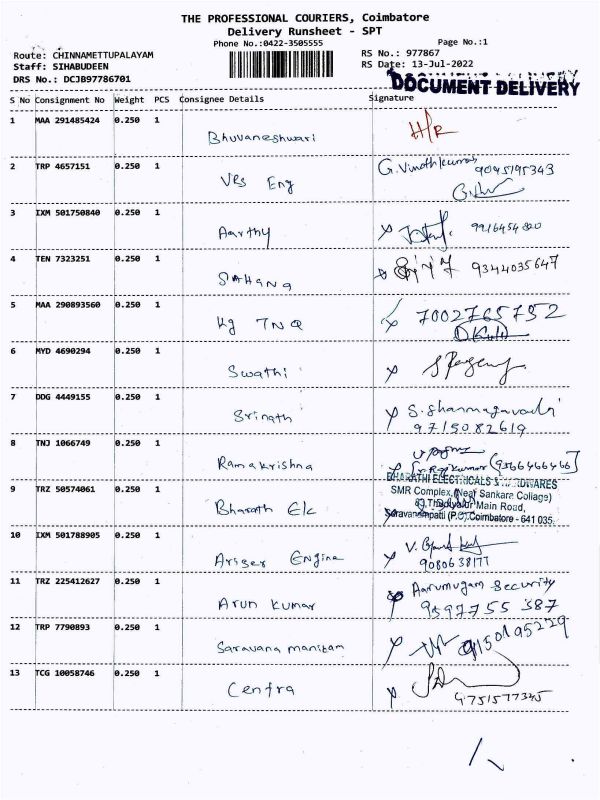 THE PROFESSIONAL COURIERS, Coimbatore
Delivery Runsheet - SPT
Phone No.:0422-3505555 Page No.:1
Route: CHINNAMETTUPALAYAM RS No.: 977867
Staff: SIHABUDEEN RS Date: 13-Jul-2022
DRS No.: DCJB97786701
DOCUMENT DELIVERY
S No Consignment No Weight PCS Consignee Details Signature
1 MAA 291485424 0.250 1
Bhuvaneshwari H/R
2 TRP 4657151 0.250 1 G.Vinothkumar 9045195343
VBS Eng
3 IXM 501750840 0.250 1
Aarthy 9916454820
4 TEN 7323251 0.250 1
SAHANA 9344035647
5 MAA 290893560 0.250 1
Kg TNQ 7002765752
6 MYD 4690294 0.250 1
Swathi
7 DDG 4449155 0.250 1
Srinath S. Shanmagavadi
9715082619
8 TNJ 1066749 0.250 1
Ramakrishna Rajkumar (9566466466)
9 TRZ 50574061 0.250 1 BHARATHI ELECTRICALS & HARDWARES
SMR Complex,(Near Sankara Collage)
Bharath Elc Main Road,
Saravanampatti (P.O) Coimbatore - 641 035.
10 IXM 501788905 0.250 1
Ariser Engine 9080638177
11 TRZ 225412627 0.250 1 Aarumugam Security
Arun Kumar 9597755 387
12 TRP 7790893 0.250 1
Saravana manikam 9150195229
13 TCG 10058746 0.250 1
Centra 9751577345